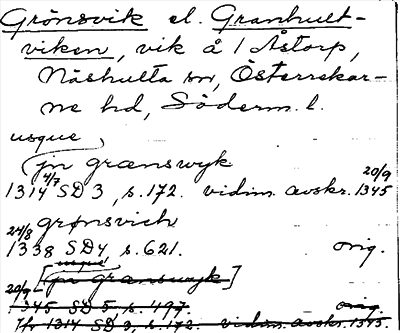 Grönsvik el. Granhult-
viken, vik å 1 Åstorp,
Näshulta sn, Österrekar-
ne hd, Söderm. l.
usque
jn grænswyk
4/7 20/9
1314 SD 3, s. 172. vidim. avskr. 1345
grønsvich
24/8
1338 SD 4 s. 621. orig.
usque
[jn grænswyk]
20/9
1345 SD 5, s. 497. orig.
4/7 1314 SD 3, s. 172. vidim. avskr. 1345.